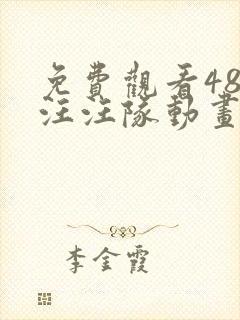 免費觀看48
汪汪隊動畫
李金霞